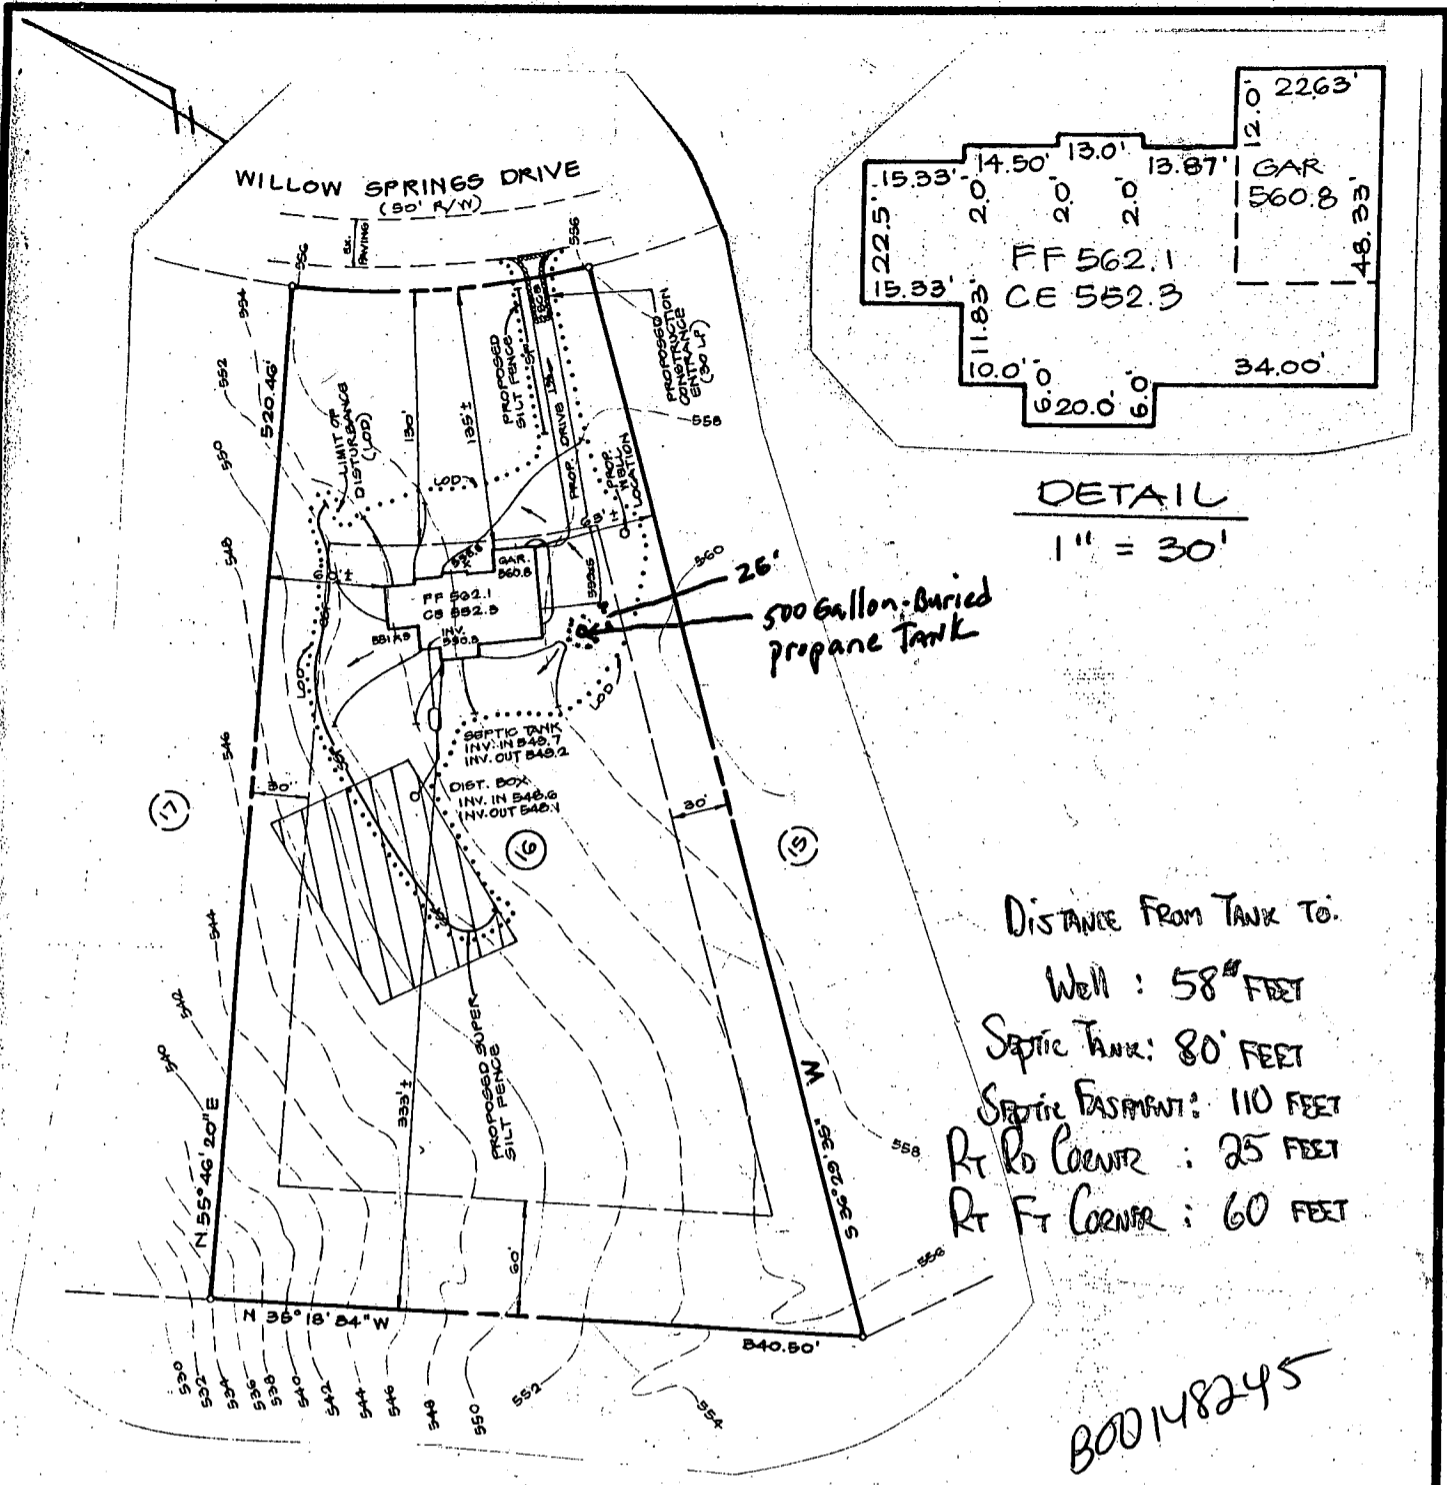 WILLOW SPRINGS DRIVE
(50' R/W)
EX.
PAVING
556
556
554
552
550
548
546
544
542
540
520.46'
LIMIT OF
DISTURBANCE
(LOD)
130'
135'±
PROPOSED
SILT FENCE
PROP. DRIVE
PROPOSED
CONSTRUCTION
ENTRANCE
(30 LF)
558
PROP.
WELL
LOCATION
LOD
560
GAR.
560.8
FF 562.1
CE 552.3
INV.
550.3
LOD
LOD
25'
500 Gallon-Buried
propane TANK
SEPTIC TANK
INV. IN 549.7
INV. OUT 549.2
DIST. BOX
INV. IN 548.6
INV. OUT 548.4
30'
30'
17
16
15
PROPOSED SUPER
SILT FENCE
333'±
60'
N 55° 46' 20" E
S 36° 29' 35" W
N 35° 18' 34" W
340.50'
558
556
530
532
534
536
538
540
542
544
546
548
550
552
554
22.63'
12.0'
15.33'
14.50'
13.0'
13.87'
GAR
560.8
2.0'
2.0'
2.0'
22.5'
48.33'
FF 562.1
CE 552.3
15.33'
11.83'
10.0'
6.0'
20.0'
6.0'
34.00'
DETAIL
1" = 30'
DISTANCE FROM TANK TO:
Well : 58 FEET
SEPTIC TANK: 80' FEET
SEPTIC EASEMENT: 110 FEET
RT RD CORNER : 25 FEET
RT FT CORNER : 60 FEET
B00148245